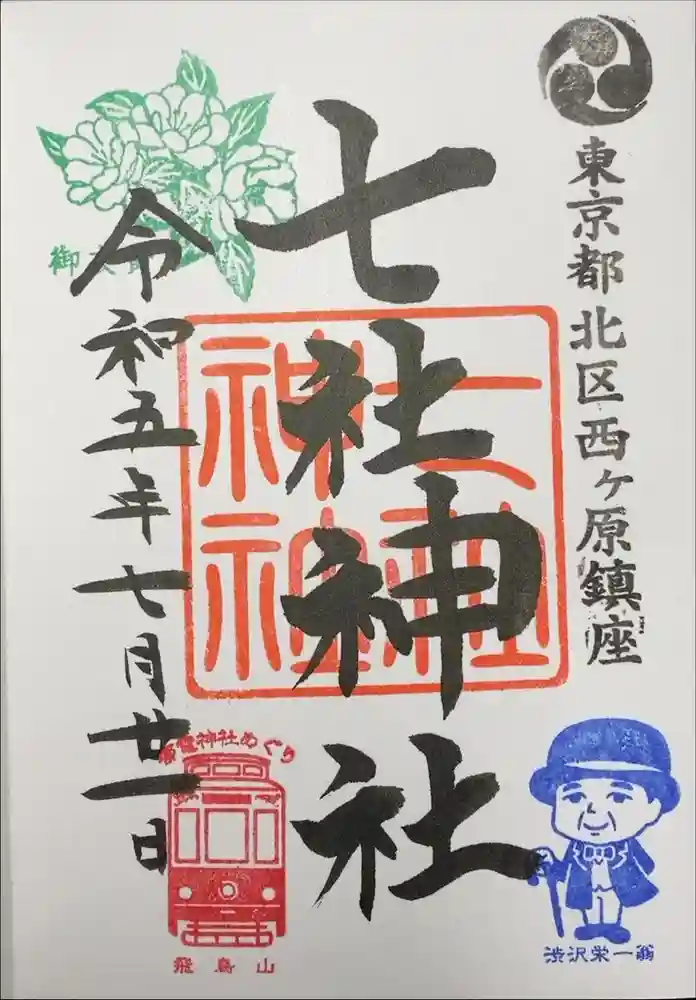 東京都北区西ヶ原鎮座
七社神社
七社
神社
令和五年七月廿一日
神社めぐり
飛鳥山
渋沢栄一翁